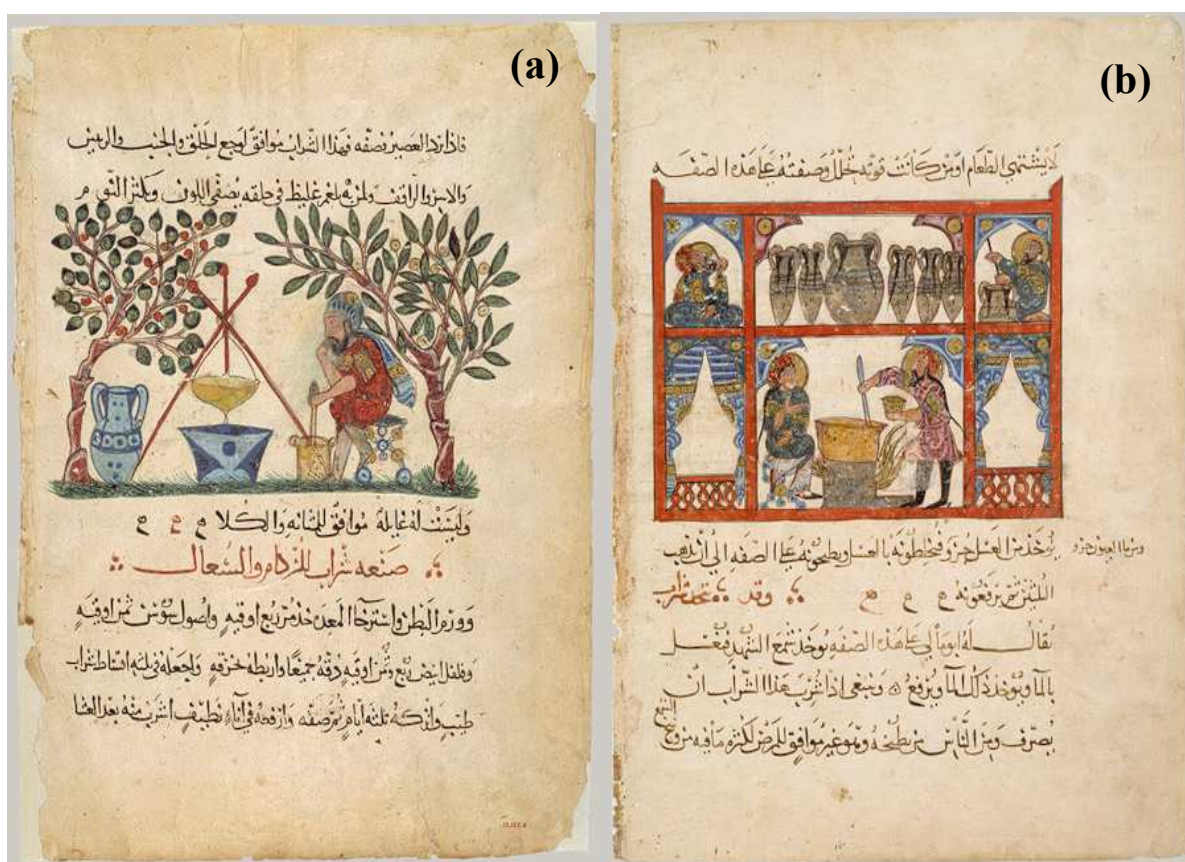 (a)
فاذا برد العصير فصفه فهذا الشراب موافق لوجع الحلق والجنب والريش
والاسر والراقف ولمن به بلغم غليظ في حلقه يصفي اللون ويكثر النوم
وليست له غايلة موافق للمثانه والكلا م م م
صنعه شراب للزكام والسعال
وورم البطن واسترخا المعدن خذ مر ربع اوقيه واصول سوس ثمن اوقيه
وفلفل ابيض ربع وثمن اوقيه دقه جميعا واربطه بخرقه واجعله في ثلثه اقساط شراب
طيب واتركه ثلثه ايام ثم صفه وارفعه في اناء نظيف اشرب منه بعد العشا
13.152.6
(b)
لا يشتهي الطعام او من كانت قوته تخلل وصنعته على هذه الصفه
يوخذ من العسل جزو فيخلطونه بالعسل ويطبخونه على الصفه الى ان يذهب
اللبن ثم يرفعونه م م م وقد شراب
يقال له ابومالي على هذه الصفه يوخذ شمع الشهد فيغسل
بالما ويوخذ ذلك الما ويرفع وينبغي اذا شرب هذا الشراب ان
يصرف ومن الناس من يطبخه وهو غير موافق للمرضى لكثرة ما فيه من وسخ
الشمع